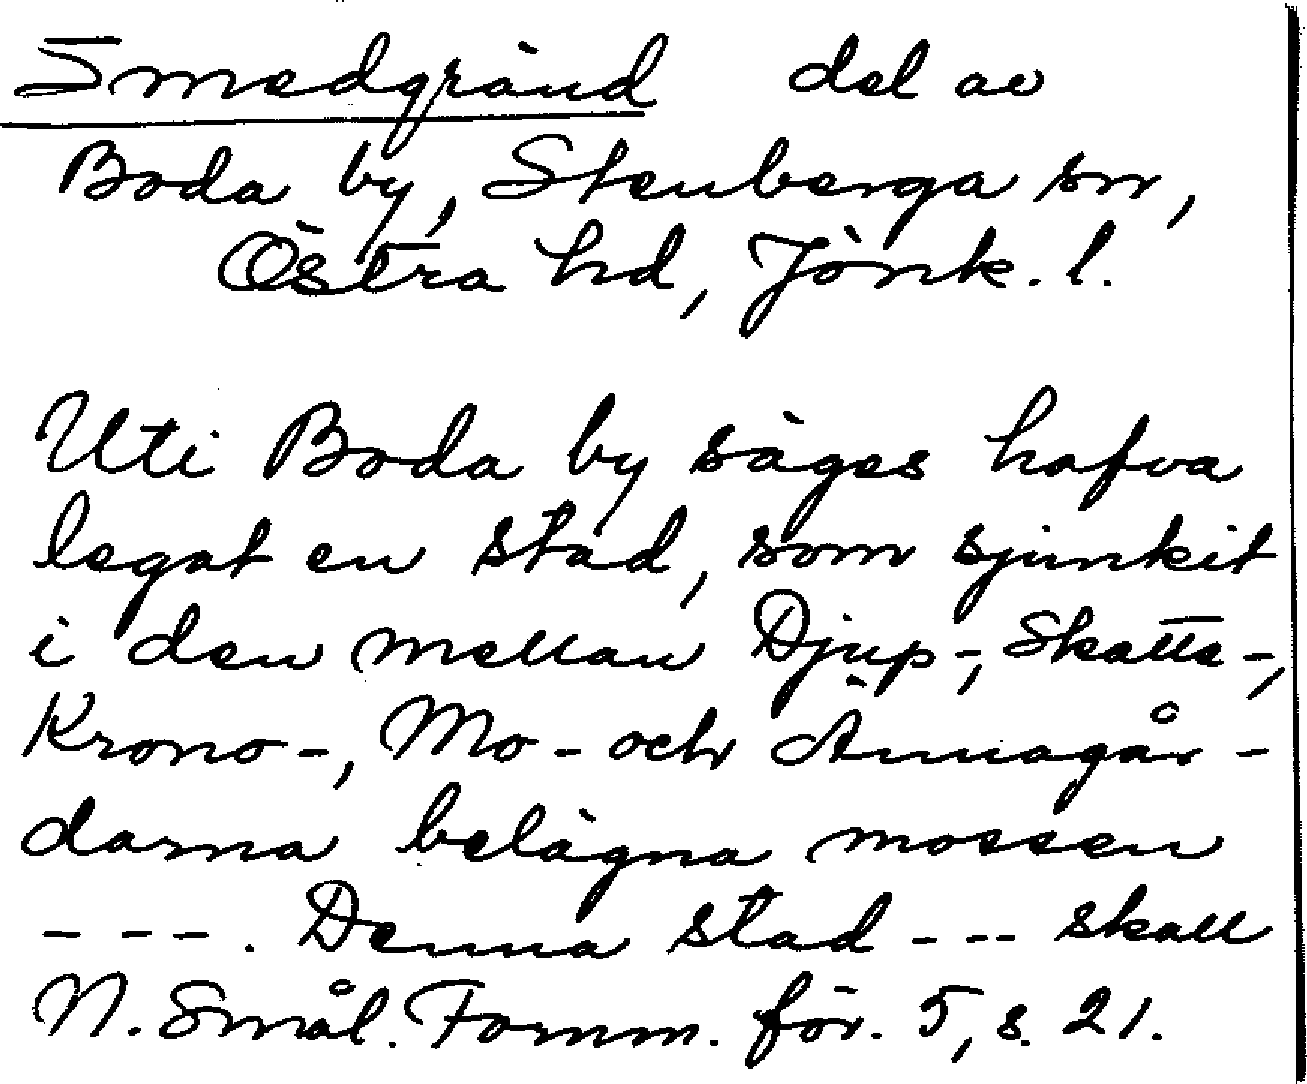 Smedgränd del av
Boda by, Stenberga sn,
Östra hd, Jönk. l.
Uti Boda by säges hafva
legat en stad, som sjunkit
i den mellan Djup-, Skatte-,
Krono-, Mo- och Ännagår-
darna belägna mossen
---. Denna stad --- skall
N. Smål. Fornm. för. 5, s. 21.